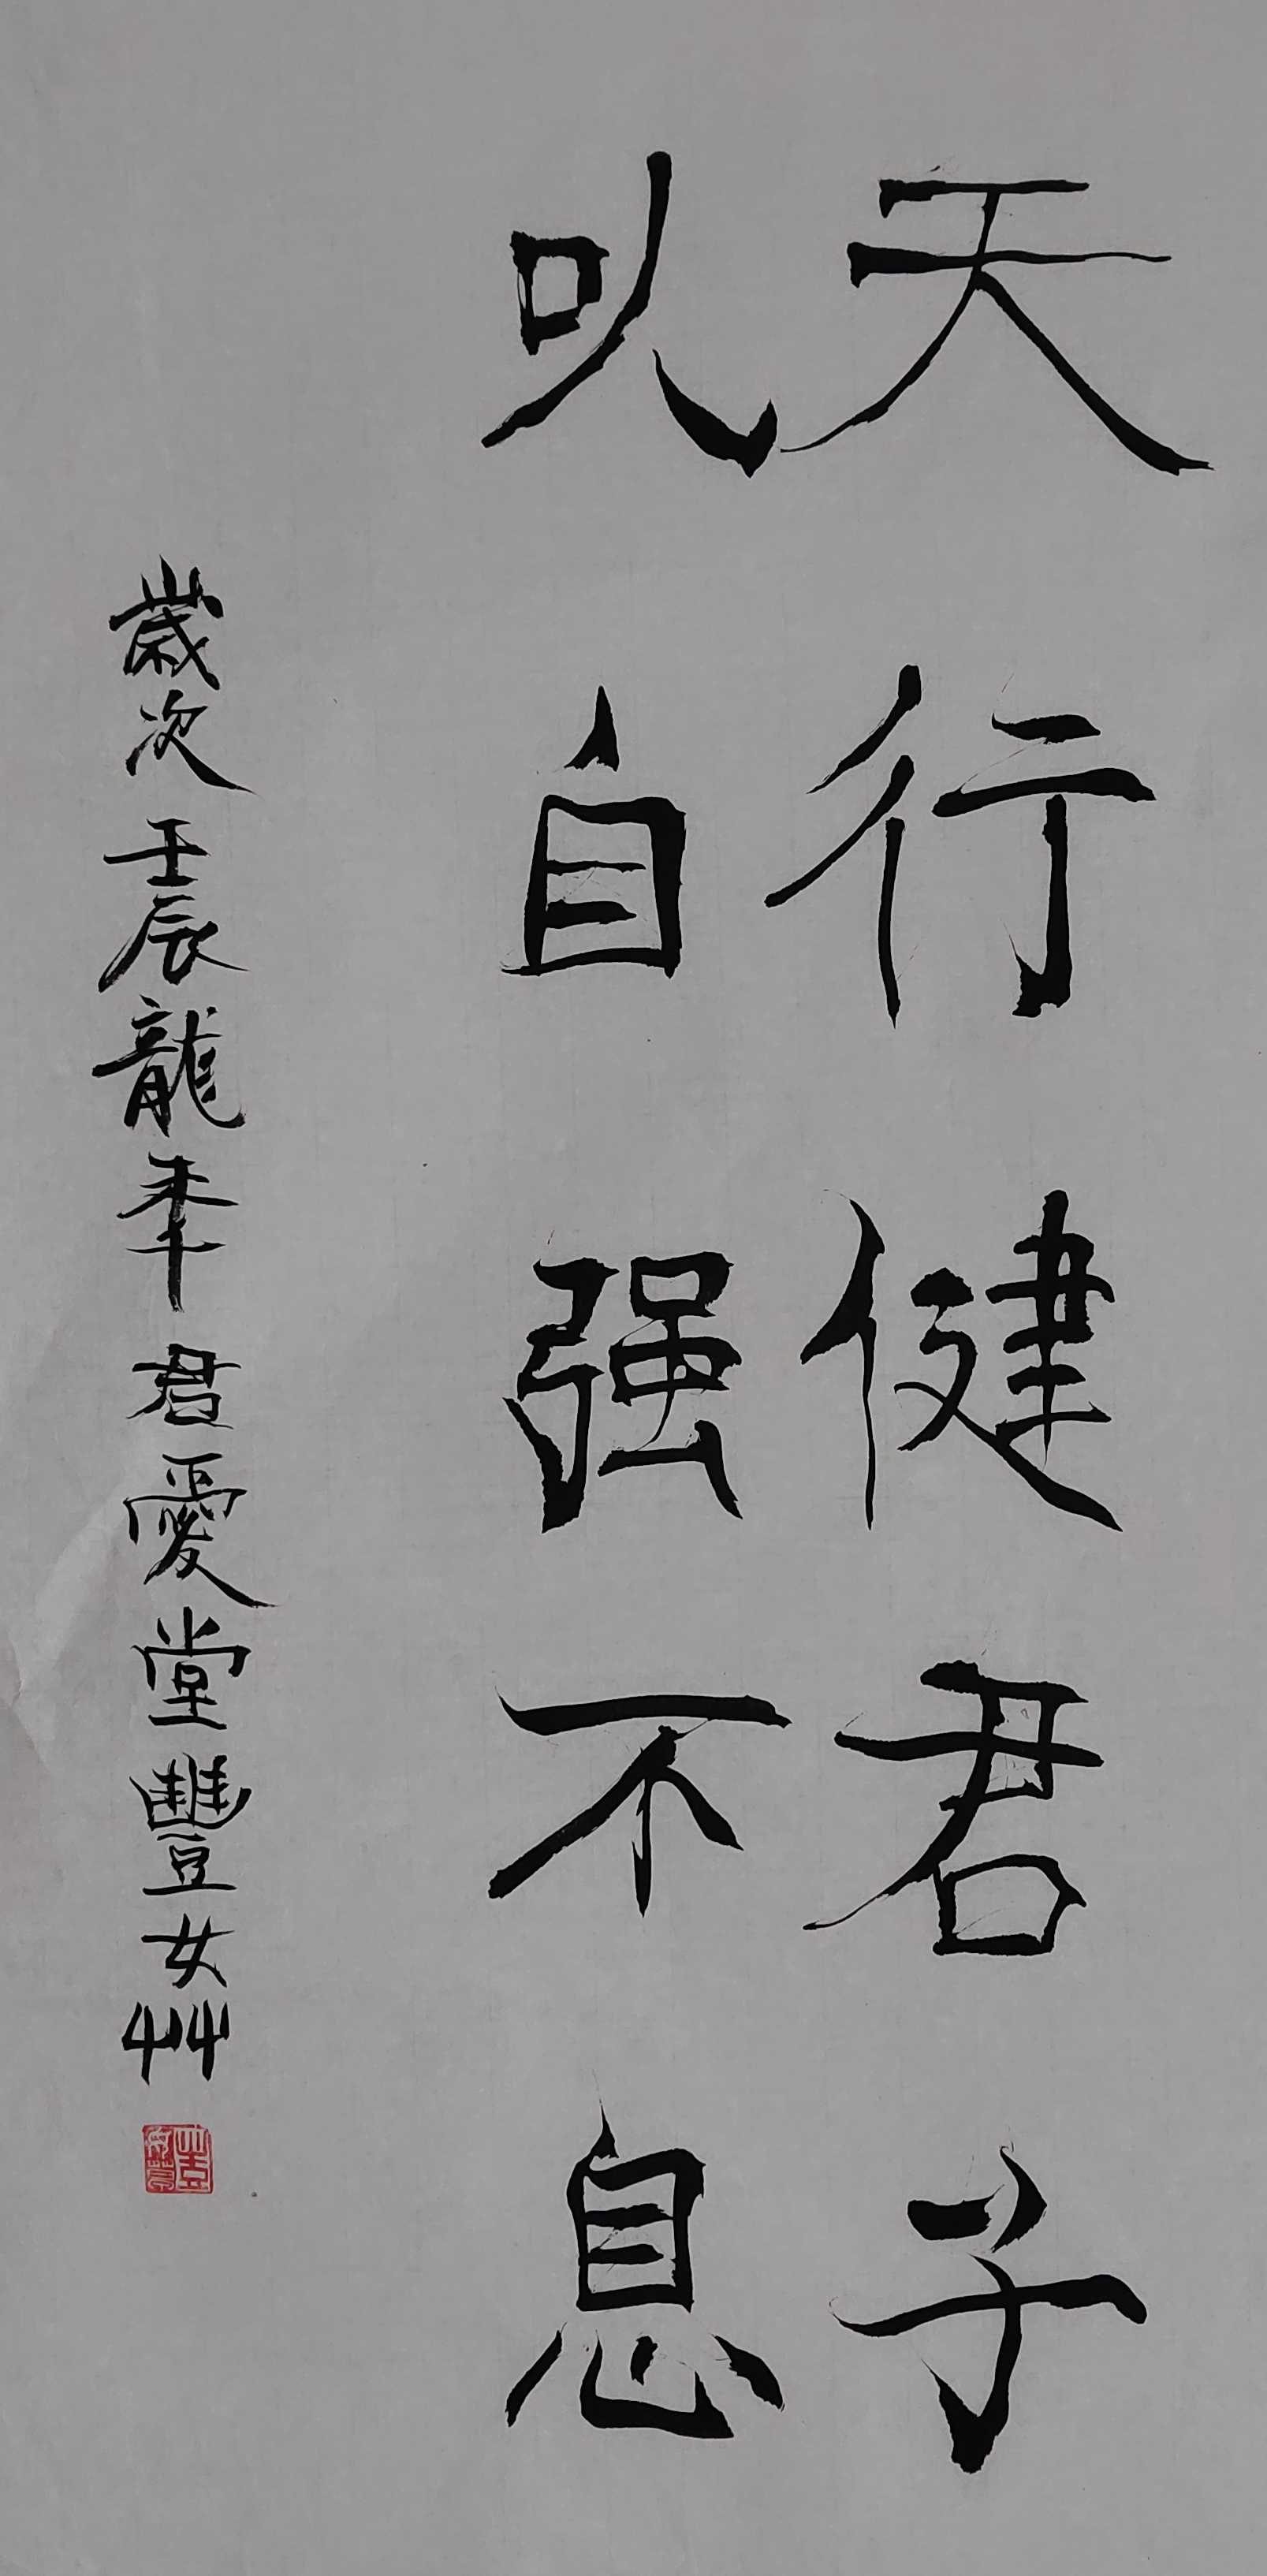 天行健君子
㕥自强不息
歲次壬辰龍年君愛堂豐女艸